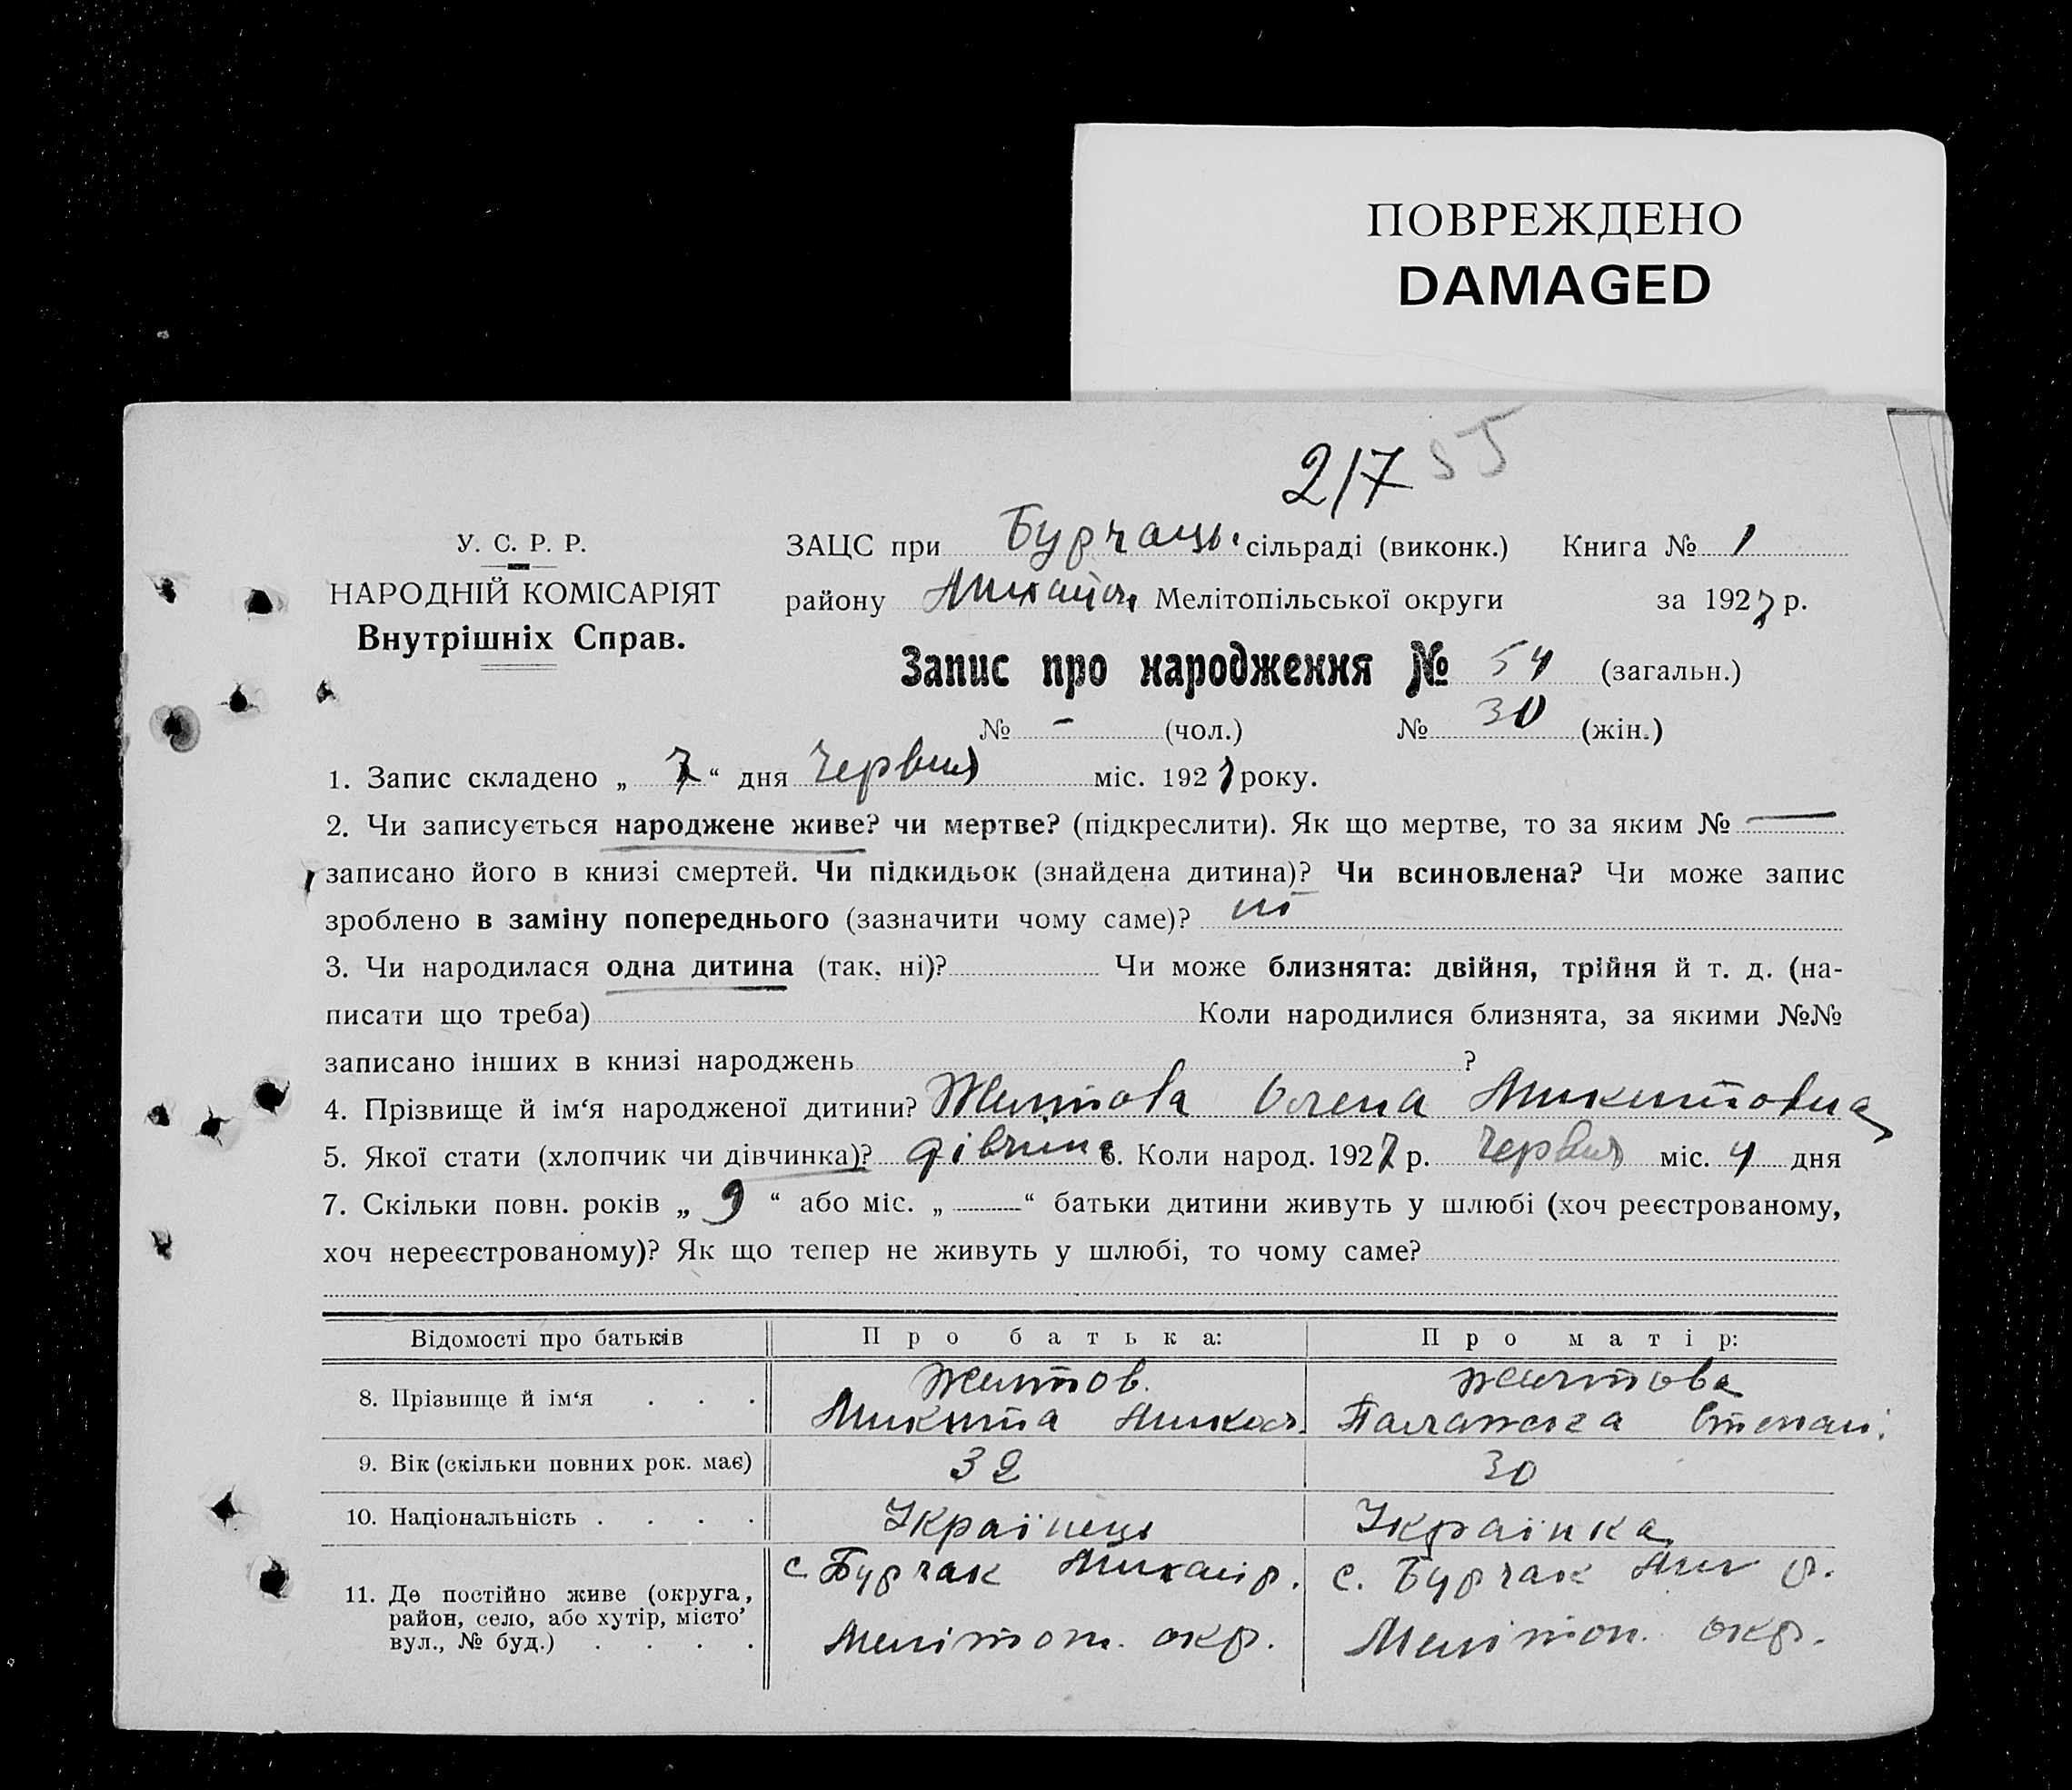 ПОВРЕЖДЕНО
DAMAGED
217 55
У. С. Р. Р.
НАРОДНІЙ КОМІСАРІЯТ
Внутрішніх Справ.
ЗАЦС при Бурчаць. сільраді (виконк.) Книга № 1
району Михайл. Мелітопільської округи за 1927 р.
Запис про народження № 54 (загальн.)
№ - (чол.) № 30 (жін.)
1. Запис складено „ 7 “ дня Червня міс. 1927 року.
2. Чи записується народжене живе? чи мертве? (підкреслити). Як що мертве, то за яким № —
записано його в книзі смертей. Чи підкидьок (знайдена дитина)? Чи всиновлена? Чи може запис
зроблено в заміну попереднього (зазначити чому саме)? ні
3. Чи народилася одна дитина (так, ні)? Чи може близнята: двійня, трійня й т. д. (на-
писати що треба) Коли народилися близнята, за якими №№
записано інших в книзі народжень ?
4. Прізвище й ім‘я народженої дитини? Житова Олена Микитовна
5. Якої стати (хлопчик чи дівчинка)? дівчина 6. Коли народ. 1927 р. Червня міс. 4 дня
7. Скільки повн. років „ 9 “ або міс. „ “ батьки дитини живуть у шлюбі (хоч реєстрованому,
хоч нереєстрованому)? Як що тепер не живуть у шлюбі, то чому саме?
Відомості про батьків Про батька: Про матір:
8. Прізвище й ім‘я . . . Житов. Микита Микол. Житова Палажка Степан.
9. Вік (скільки повних рок. має) 32 30
10. Національність . . . . Українець Українка
11. Де постійно живе (округа, район, село, або хутір, місто, вул., № буд.) . . . . с. Бурчак Михай р. Мелітоп. окр. с. Бурчак Мих р. Мелітоп. окр.